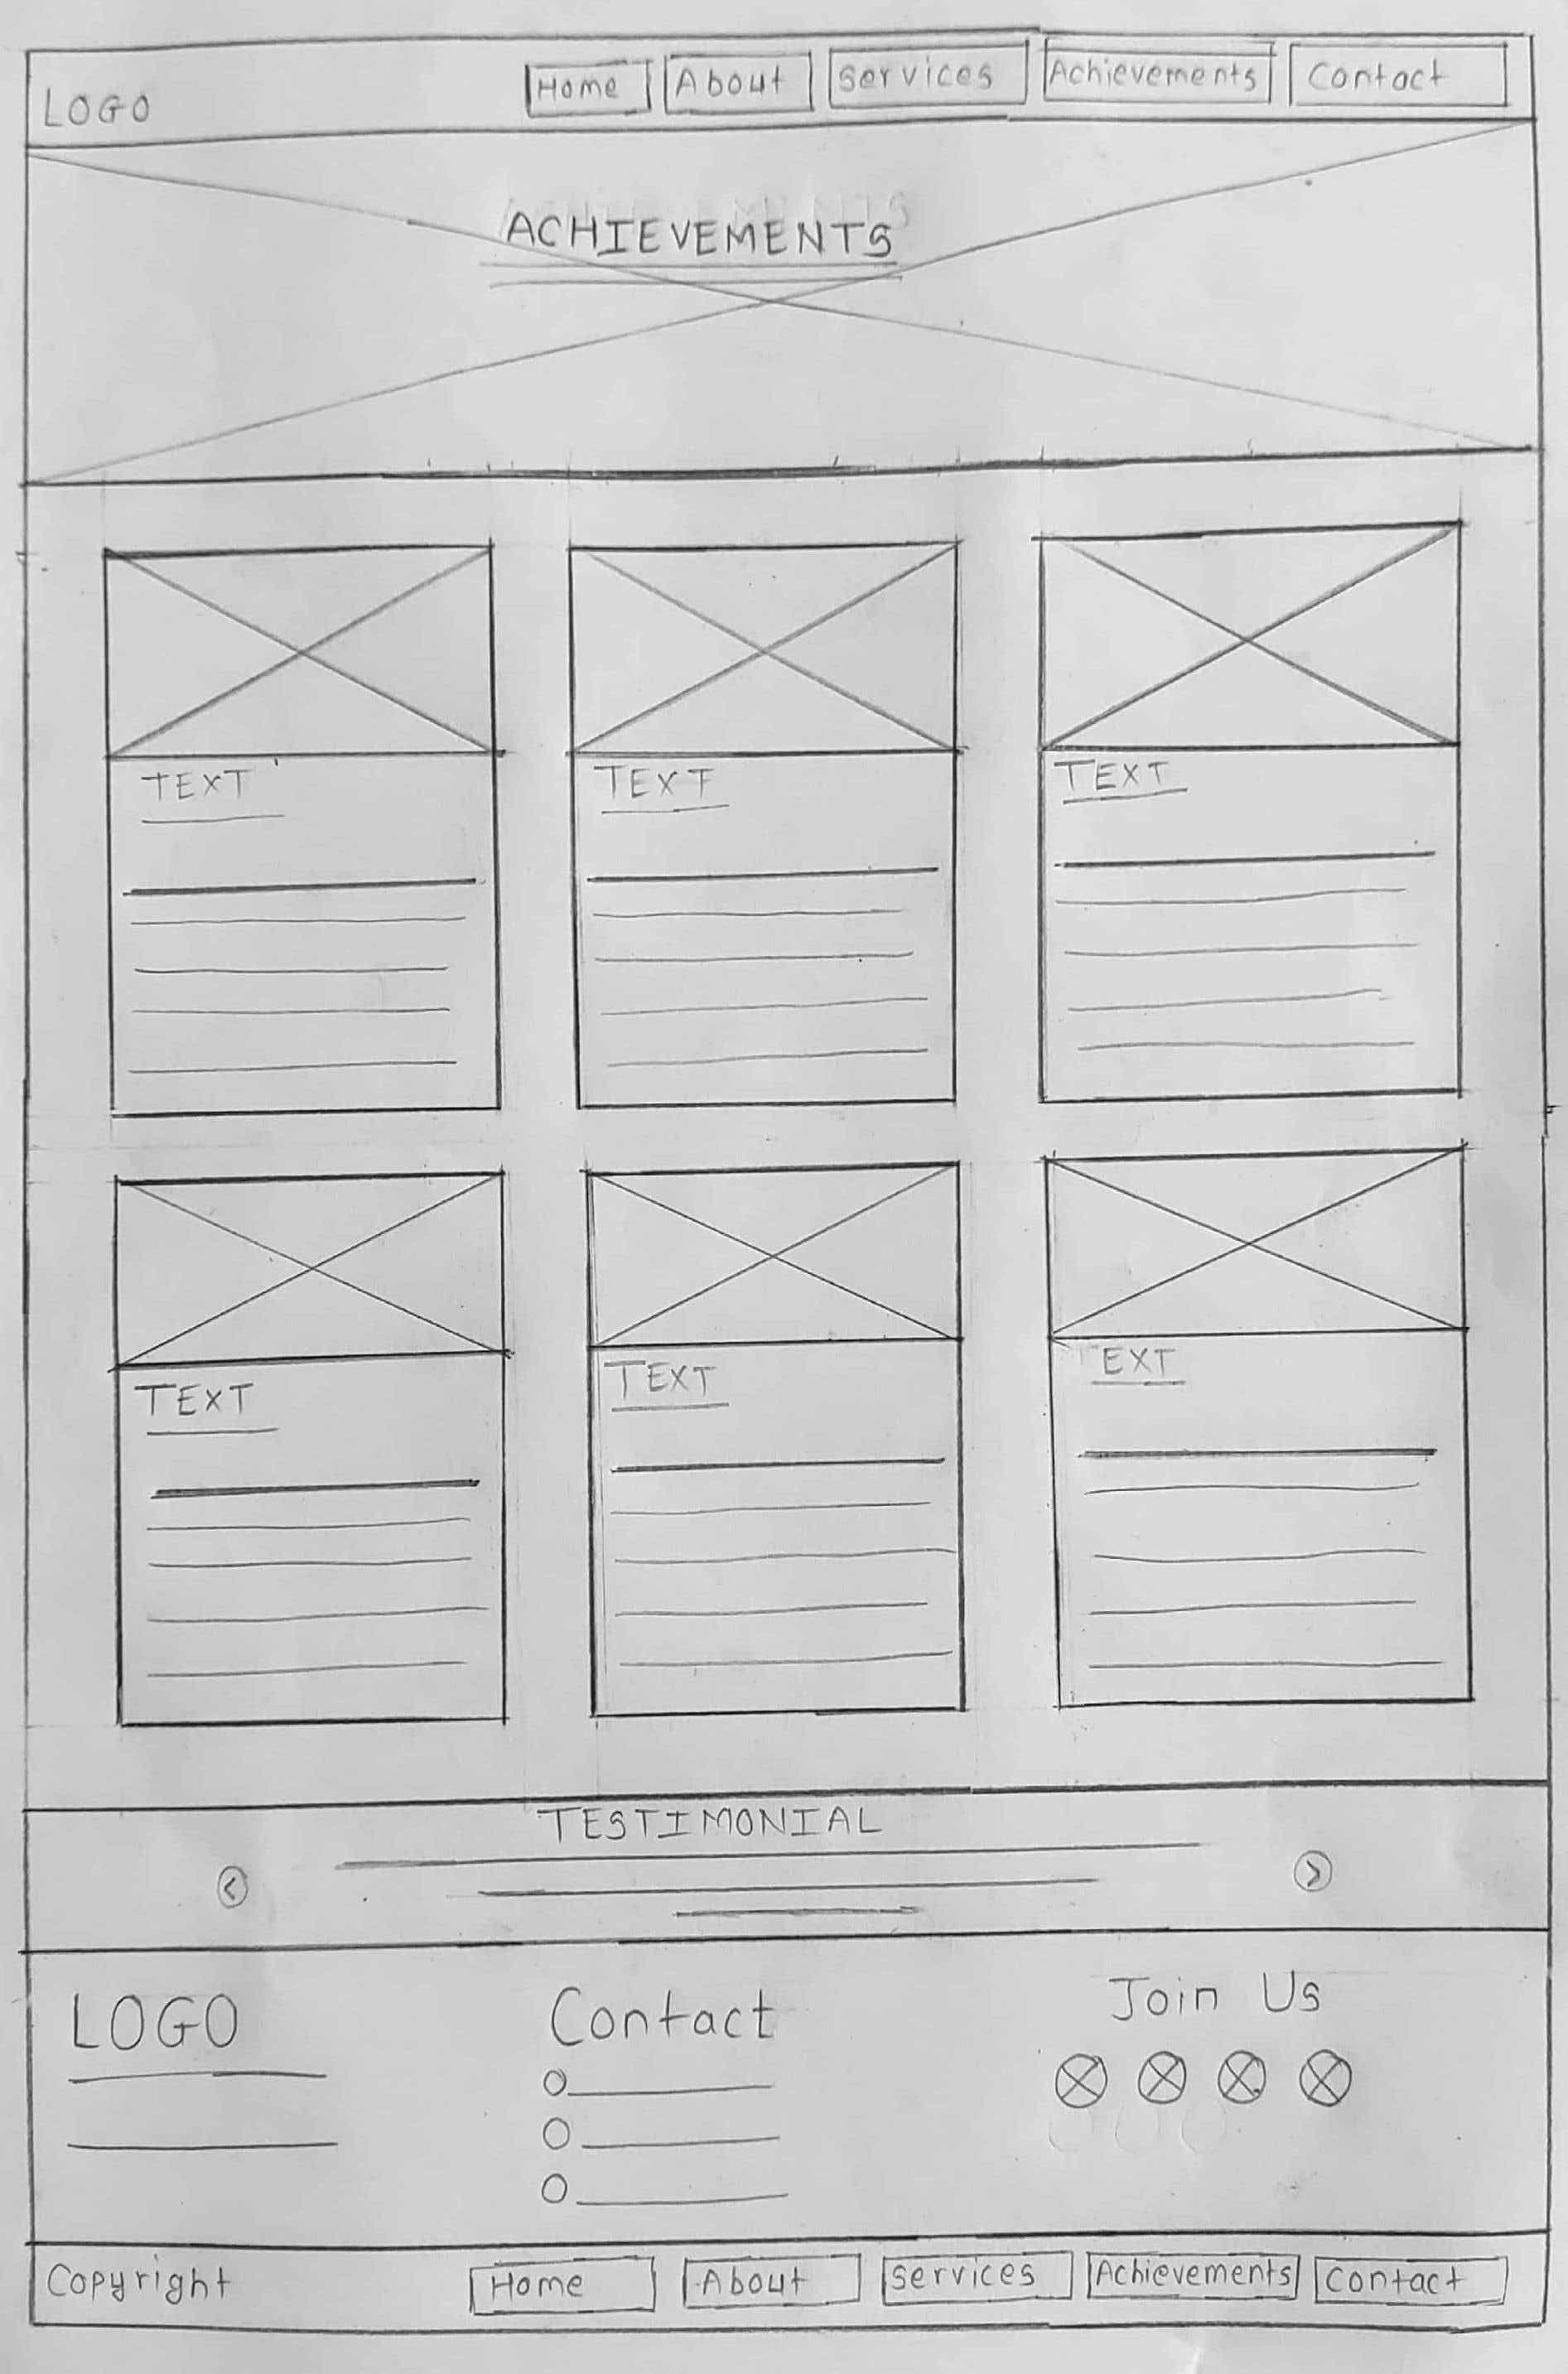 LOGO Home About Services Achievements Contact
ACHIEVEMENTS
TEXT TEXT TEXT
TEXT TEXT TEXT
TESTIMONIAL
< >
LOGO Contact Join Us
Copyright Home About Services Achievements Contact